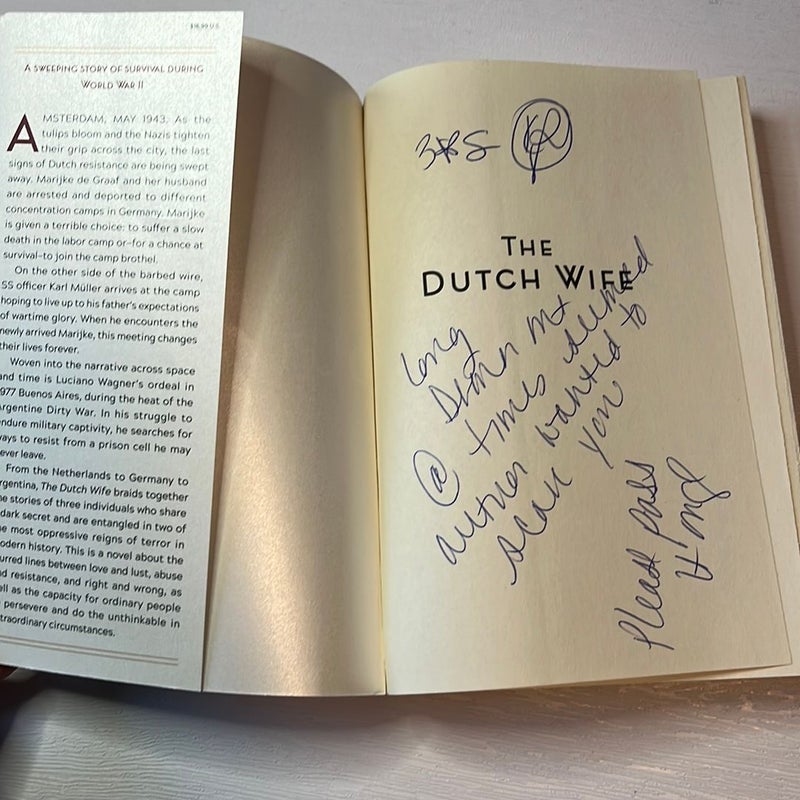 $16.99 U.S.
A SWEEPING STORY OF SURVIVAL DURING
WORLD WAR II
AMSTERDAM, MAY 1943. As the
tulips bloom and the Nazis tighten
their grip across the city, the last
signs of Dutch resistance are being swept
away. Marijke de Graaf and her husband
are arrested and deported to different
concentration camps in Germany. Marijke
is given a terrible choice: to suffer a slow
death in the labor camp or–for a chance at
survival–to join the camp brothel.
On the other side of the barbed wire,
SS officer Karl Müller arrives at the camp
hoping to live up to his father's expectations
of wartime glory. When he encounters the
newly arrived Marijke, this meeting changes
their lives forever.
Woven into the narrative across space
and time is Luciano Wagner's ordeal in
977 Buenos Aires, during the heat of the
Argentine Dirty War. In his struggle to
endure military captivity, he searches for
ways to resist from a prison cell he may
ever leave.
From the Netherlands to Germany to
rgentina, The Dutch Wife braids together
e stories of three individuals who share
dark secret and are entangled in two of
e most oppressive reigns of terror in
odern history. This is a novel about the
urred lines between love and lust, abuse
d resistance, and right and wrong, as
ell as the capacity for ordinary people
persevere and do the unthinkable in
traordinary circumstances.
THE
DUTCH WIFE
long
@ times seemed
author wanted to
you
Please pass